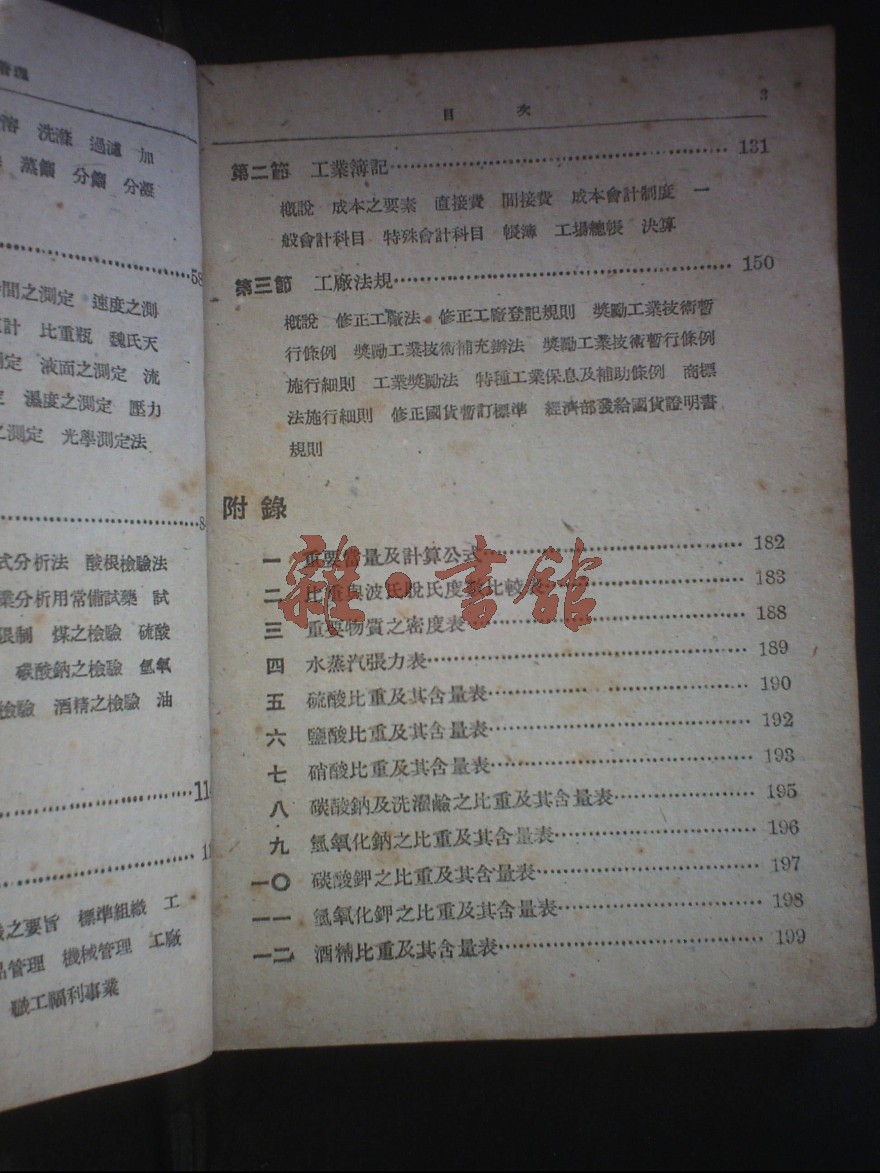 管理
溶 洗滌 過濾 加
蒸餾 分餾 分凝
58
時間之測定 速度之測
計 比重瓶 魏氏天
測定 液面之測定 流
定 濕度之測定 壓力
之測定 光學測定法
8
式分析法 酸根檢驗法
業分析用常備試藥 試
限制 煤之檢驗 硫酸
碳酸鈉之檢驗 氫氧
檢驗 酒精之檢驗 油
11
1
之要旨 標準組織 工
品管理 機械管理 工廠
職工福利事業
目 次 3
第二節 工業簿記 131
概說 成本之要素 直接費 間接費 成本會計制度 一
般會計科目 特殊會計科目 帳簿 工場總帳 決算
第三節 工廠法規 150
概說 修正工廠法 修正工廠登記規則 獎勵工業技術暫
行條例 獎勵工業技術補充辦法 獎勵工業技術暫行條例
施行細則 工業獎勵法 特種工業保息及補助條例 商標
法施行細則 修正國貨暫訂標準 經濟部發給國貨證明書
規則
附錄
一 重要當量及計算公式 182
二 比重與波氏脫氏度數比較表 183
三 重要物質之密度表 188
四 水蒸汽張力表 189
五 硫酸比重及其含量表 190
六 鹽酸比重及其含量表 192
七 硝酸比重及其含量表 193
八 碳酸鈉及洗濯鹼之比重及其含量表 195
九 氫氧化鈉之比重及其含量表 196
一〇 碳酸鉀之比重及其含量表 197
一一 氫氧化鉀之比重及其含量表 198
一二 酒精比重及其含量表 199
雜·書館